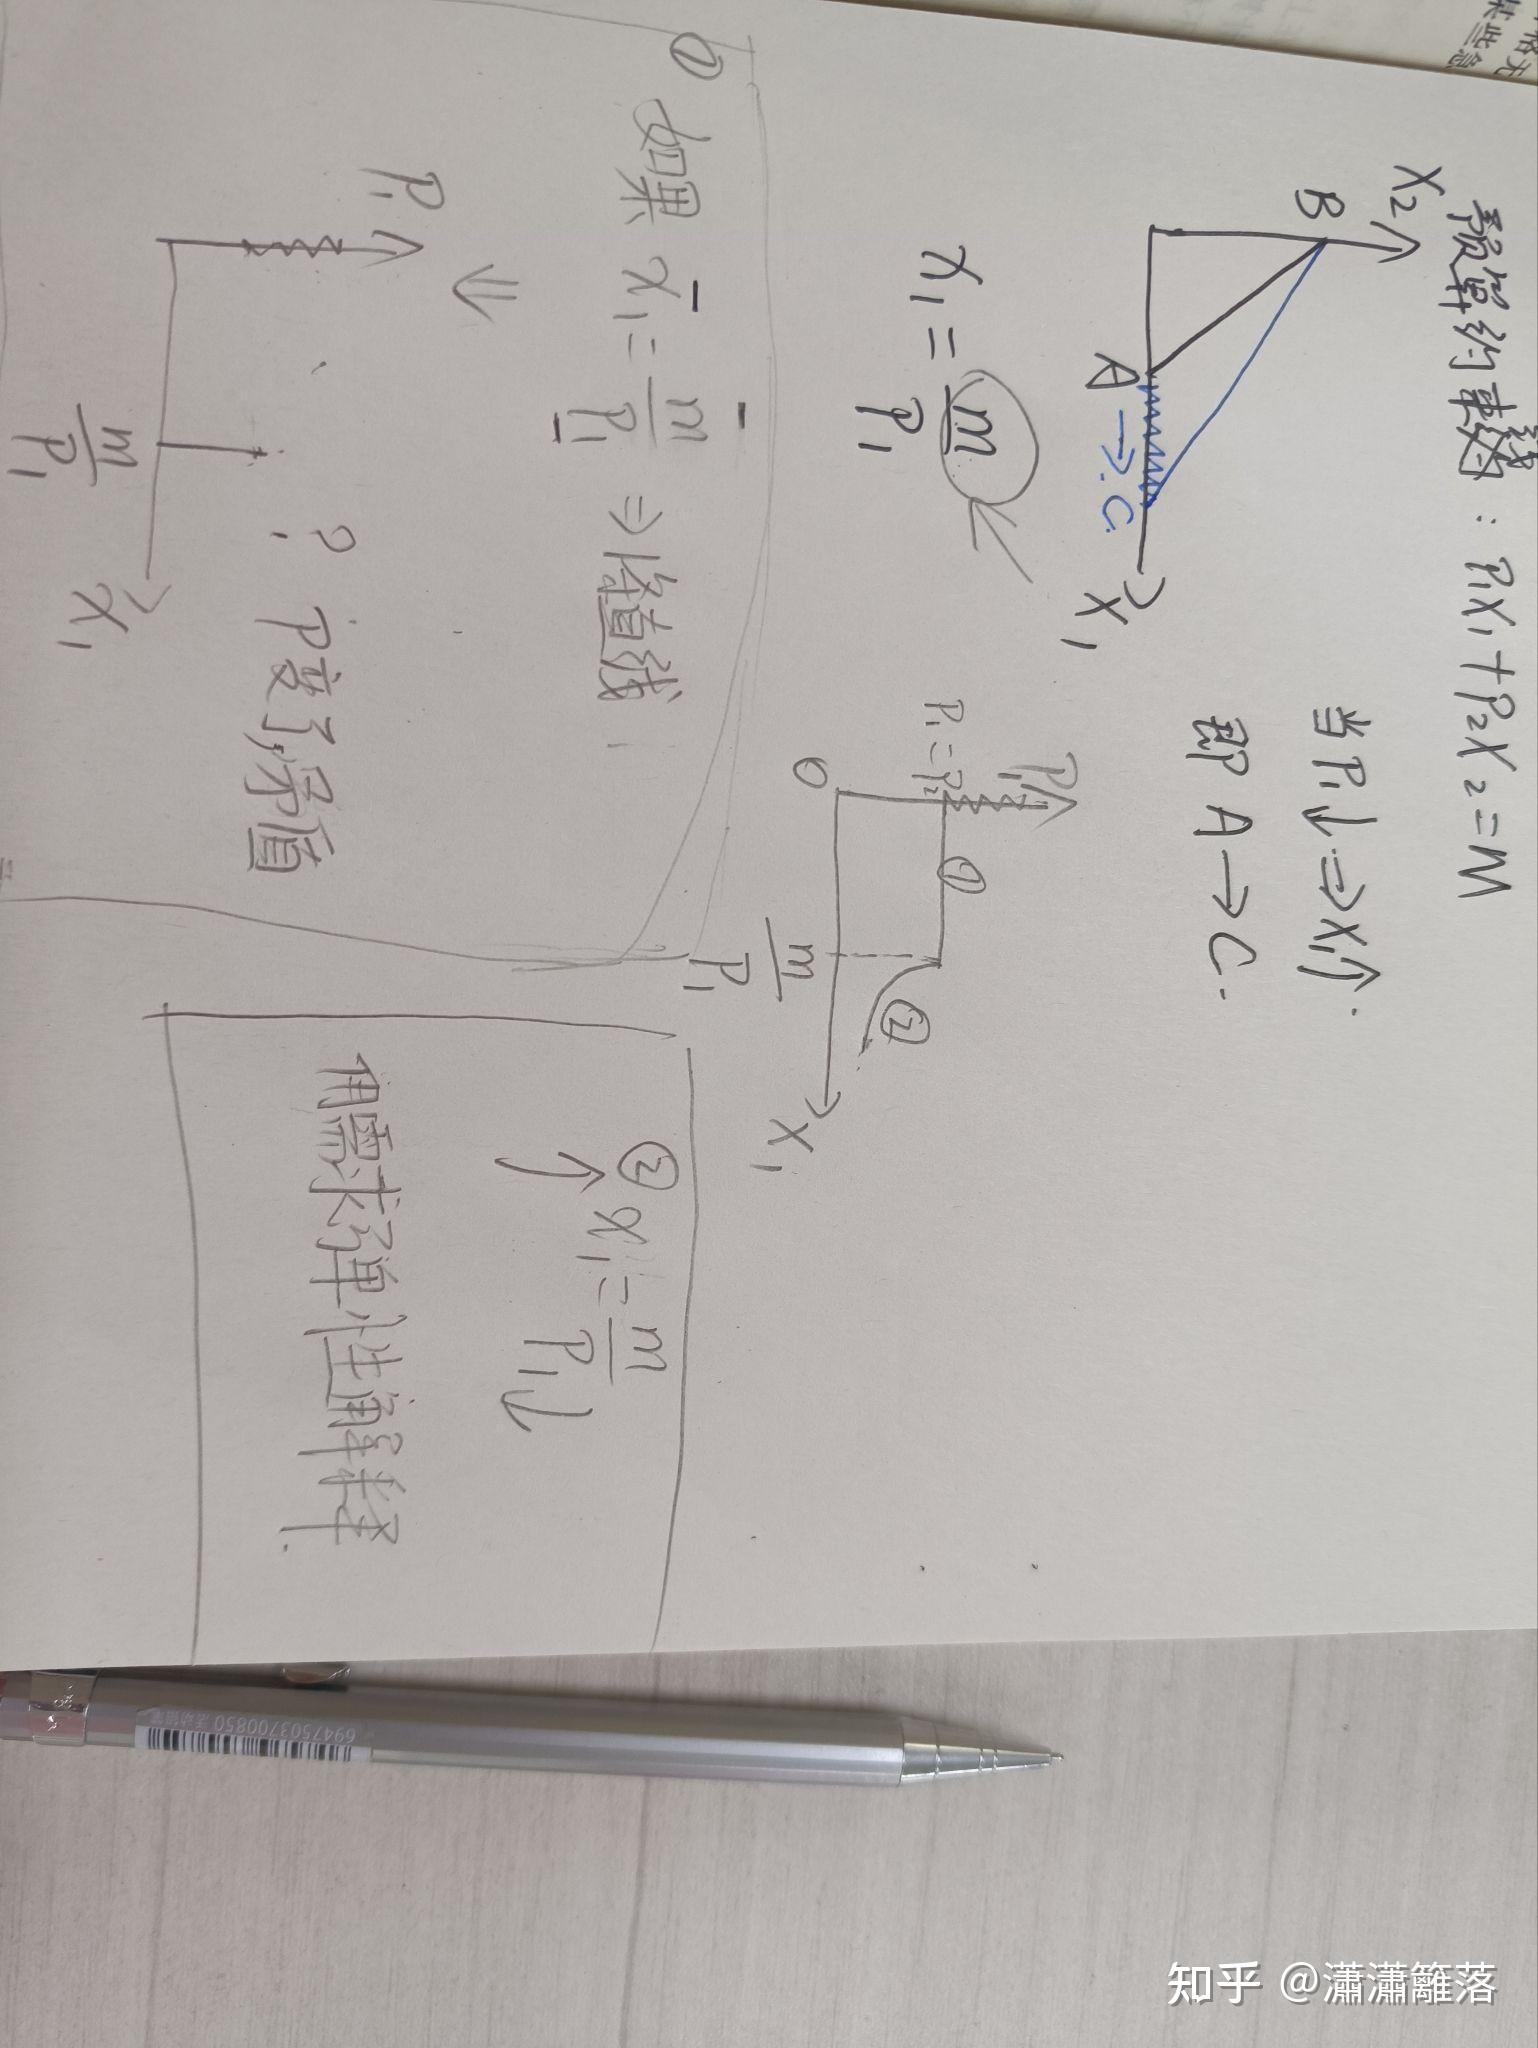 预算约束线：P₁X₁+P₂X₂=M
X₂
B
A→C
X₁
当P₁↓⇒X₁↑.
即 A→C.
x₁=m/P₁
P₁
P₁=P₂
①
②
O
m/P₁
X₁
① 如果 x̄₁=m̄/P̄₁ ⇒
⇓
P₁
? P变了,
m/P₁
x₁
② x₁=m/P₁↓
↑
用需求弹性解释.
6947503700850 活动铅笔
知乎 @瀟瀟籬落